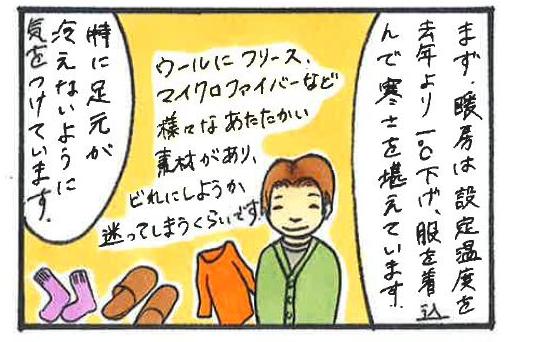 まず、暖房は設定温度を
去年より一℃下げ、服を着込
んで寒さを堪えています。
ウールにフリース、
マイクロファイバーなど
様々なあたたかい
素材があり、
どれにしようか
迷ってしまうくらいです。
特に足元が
冷えないように
気をつけています。